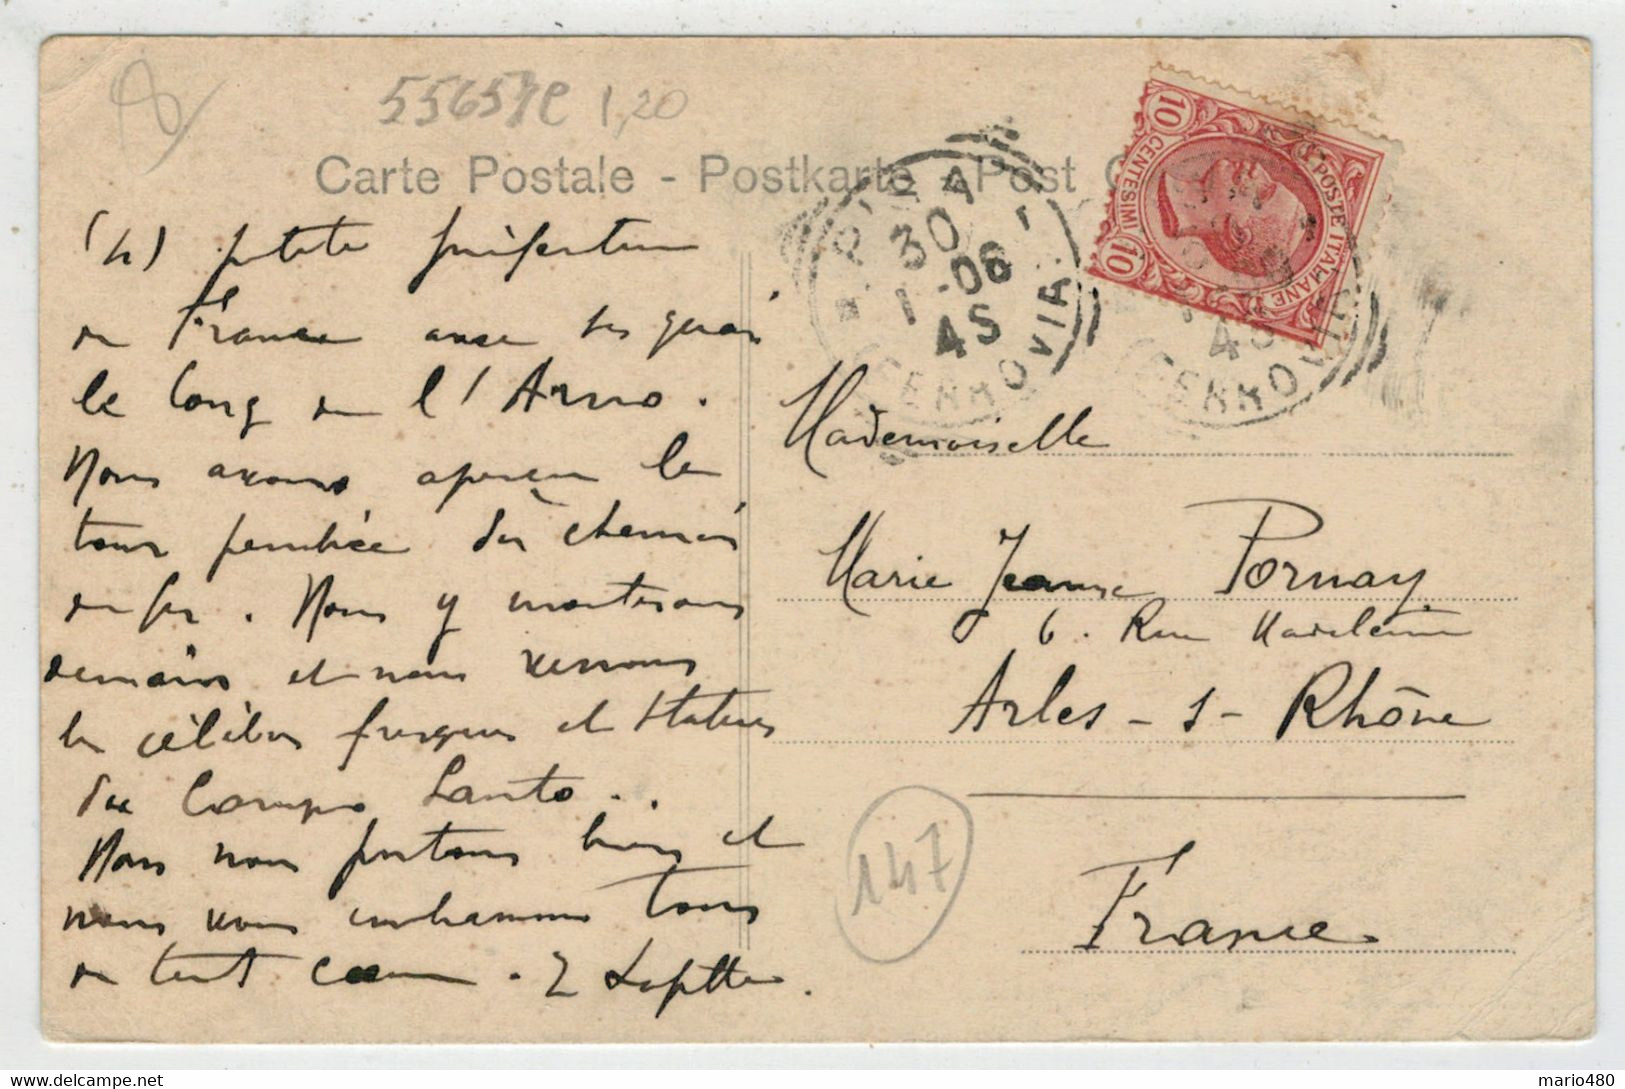 55657e 1,20
Carte Postale - Postkarte - Post C
PISA
30
1 - 06
4S
FERROVIA
POSTE ITALIANE
CENTESIMI
10
10
4S
FERROVIA
(4) petite préfecture
de France avec ses quais
le long de l'Arno.
Nous avons aperçu la
tour penchée du chemin
de fer. Nous y monterons
demain et nous verrons
les célèbres fresques et statues
du Campo Santo..
Nous nous portons bien et
nous vous embrassons tous
de tout coeur.
Mademoiselle
Marie Jeanne Pornay
6. Rue Madeleine
Arles - s - Rhône
France
147
mario480